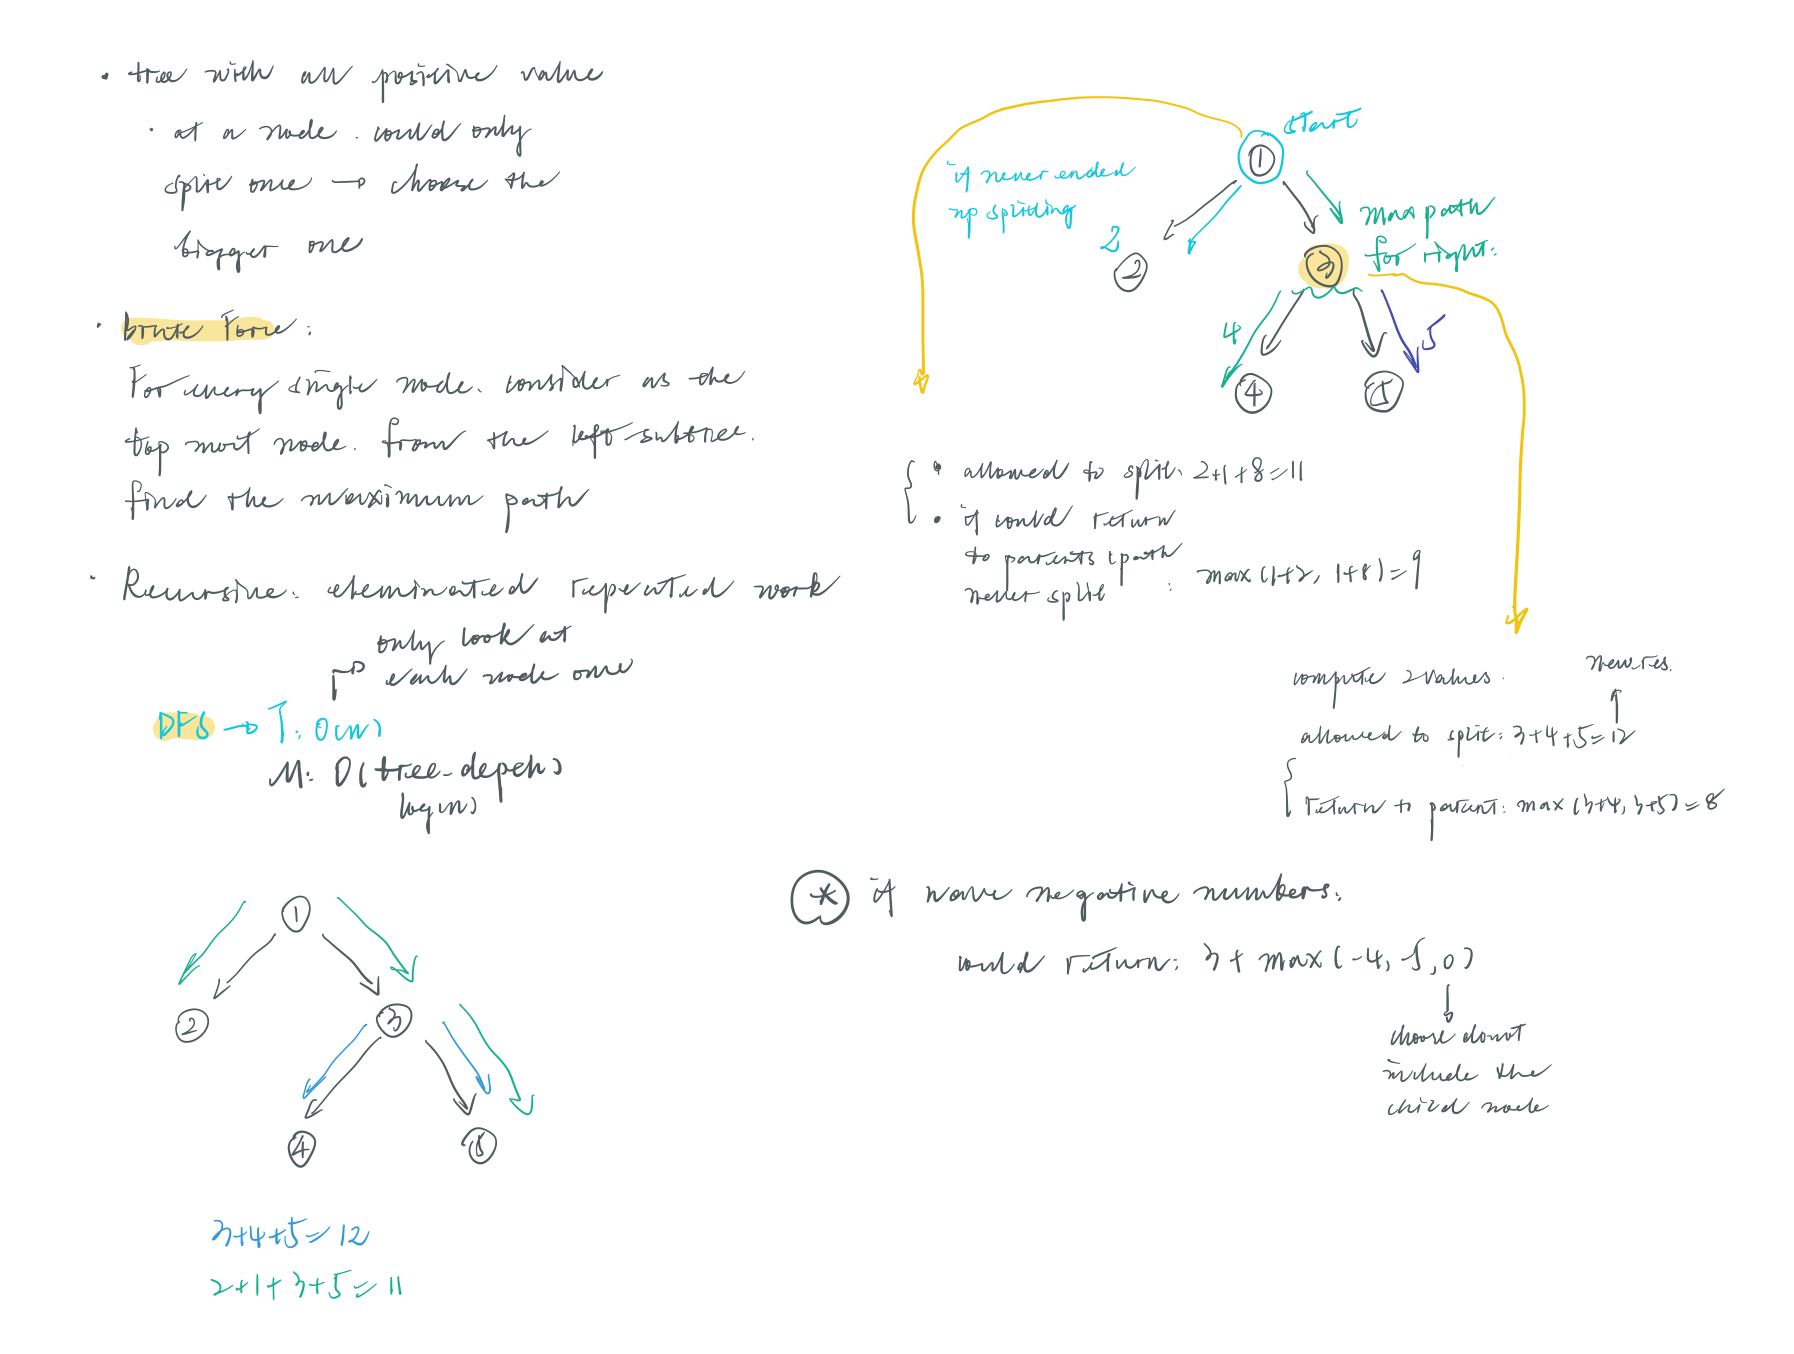 • tree with all positive value
• at a node. could only
split once → choose the
bigger one
• brute Force:
For every single node. consider as the
top most node. from the left subtree.
find the maximum path
• Recursive: eleminated repeated work
only look at
each node once
DFS → T: O(n)
M: O(tree-depth)
log(n)
1
2
3
4
5
3+4+5=12
2+1+3+5=11
start
1
if never ended
up splitting
max path
for right:
2
2
3
4
5
4
5
• allowed to split: 2+1+8=11
• if could return
to parents (path
never split : max(1+2, 1+8)=9
compute 2 values.
new res.
allowed to split: 3+4+5=12
return to parent: max(3+4, 3+5)=8
* if have negative numbers:
could return: 3+max(-4,-5,0)
choose donot
include the
child node